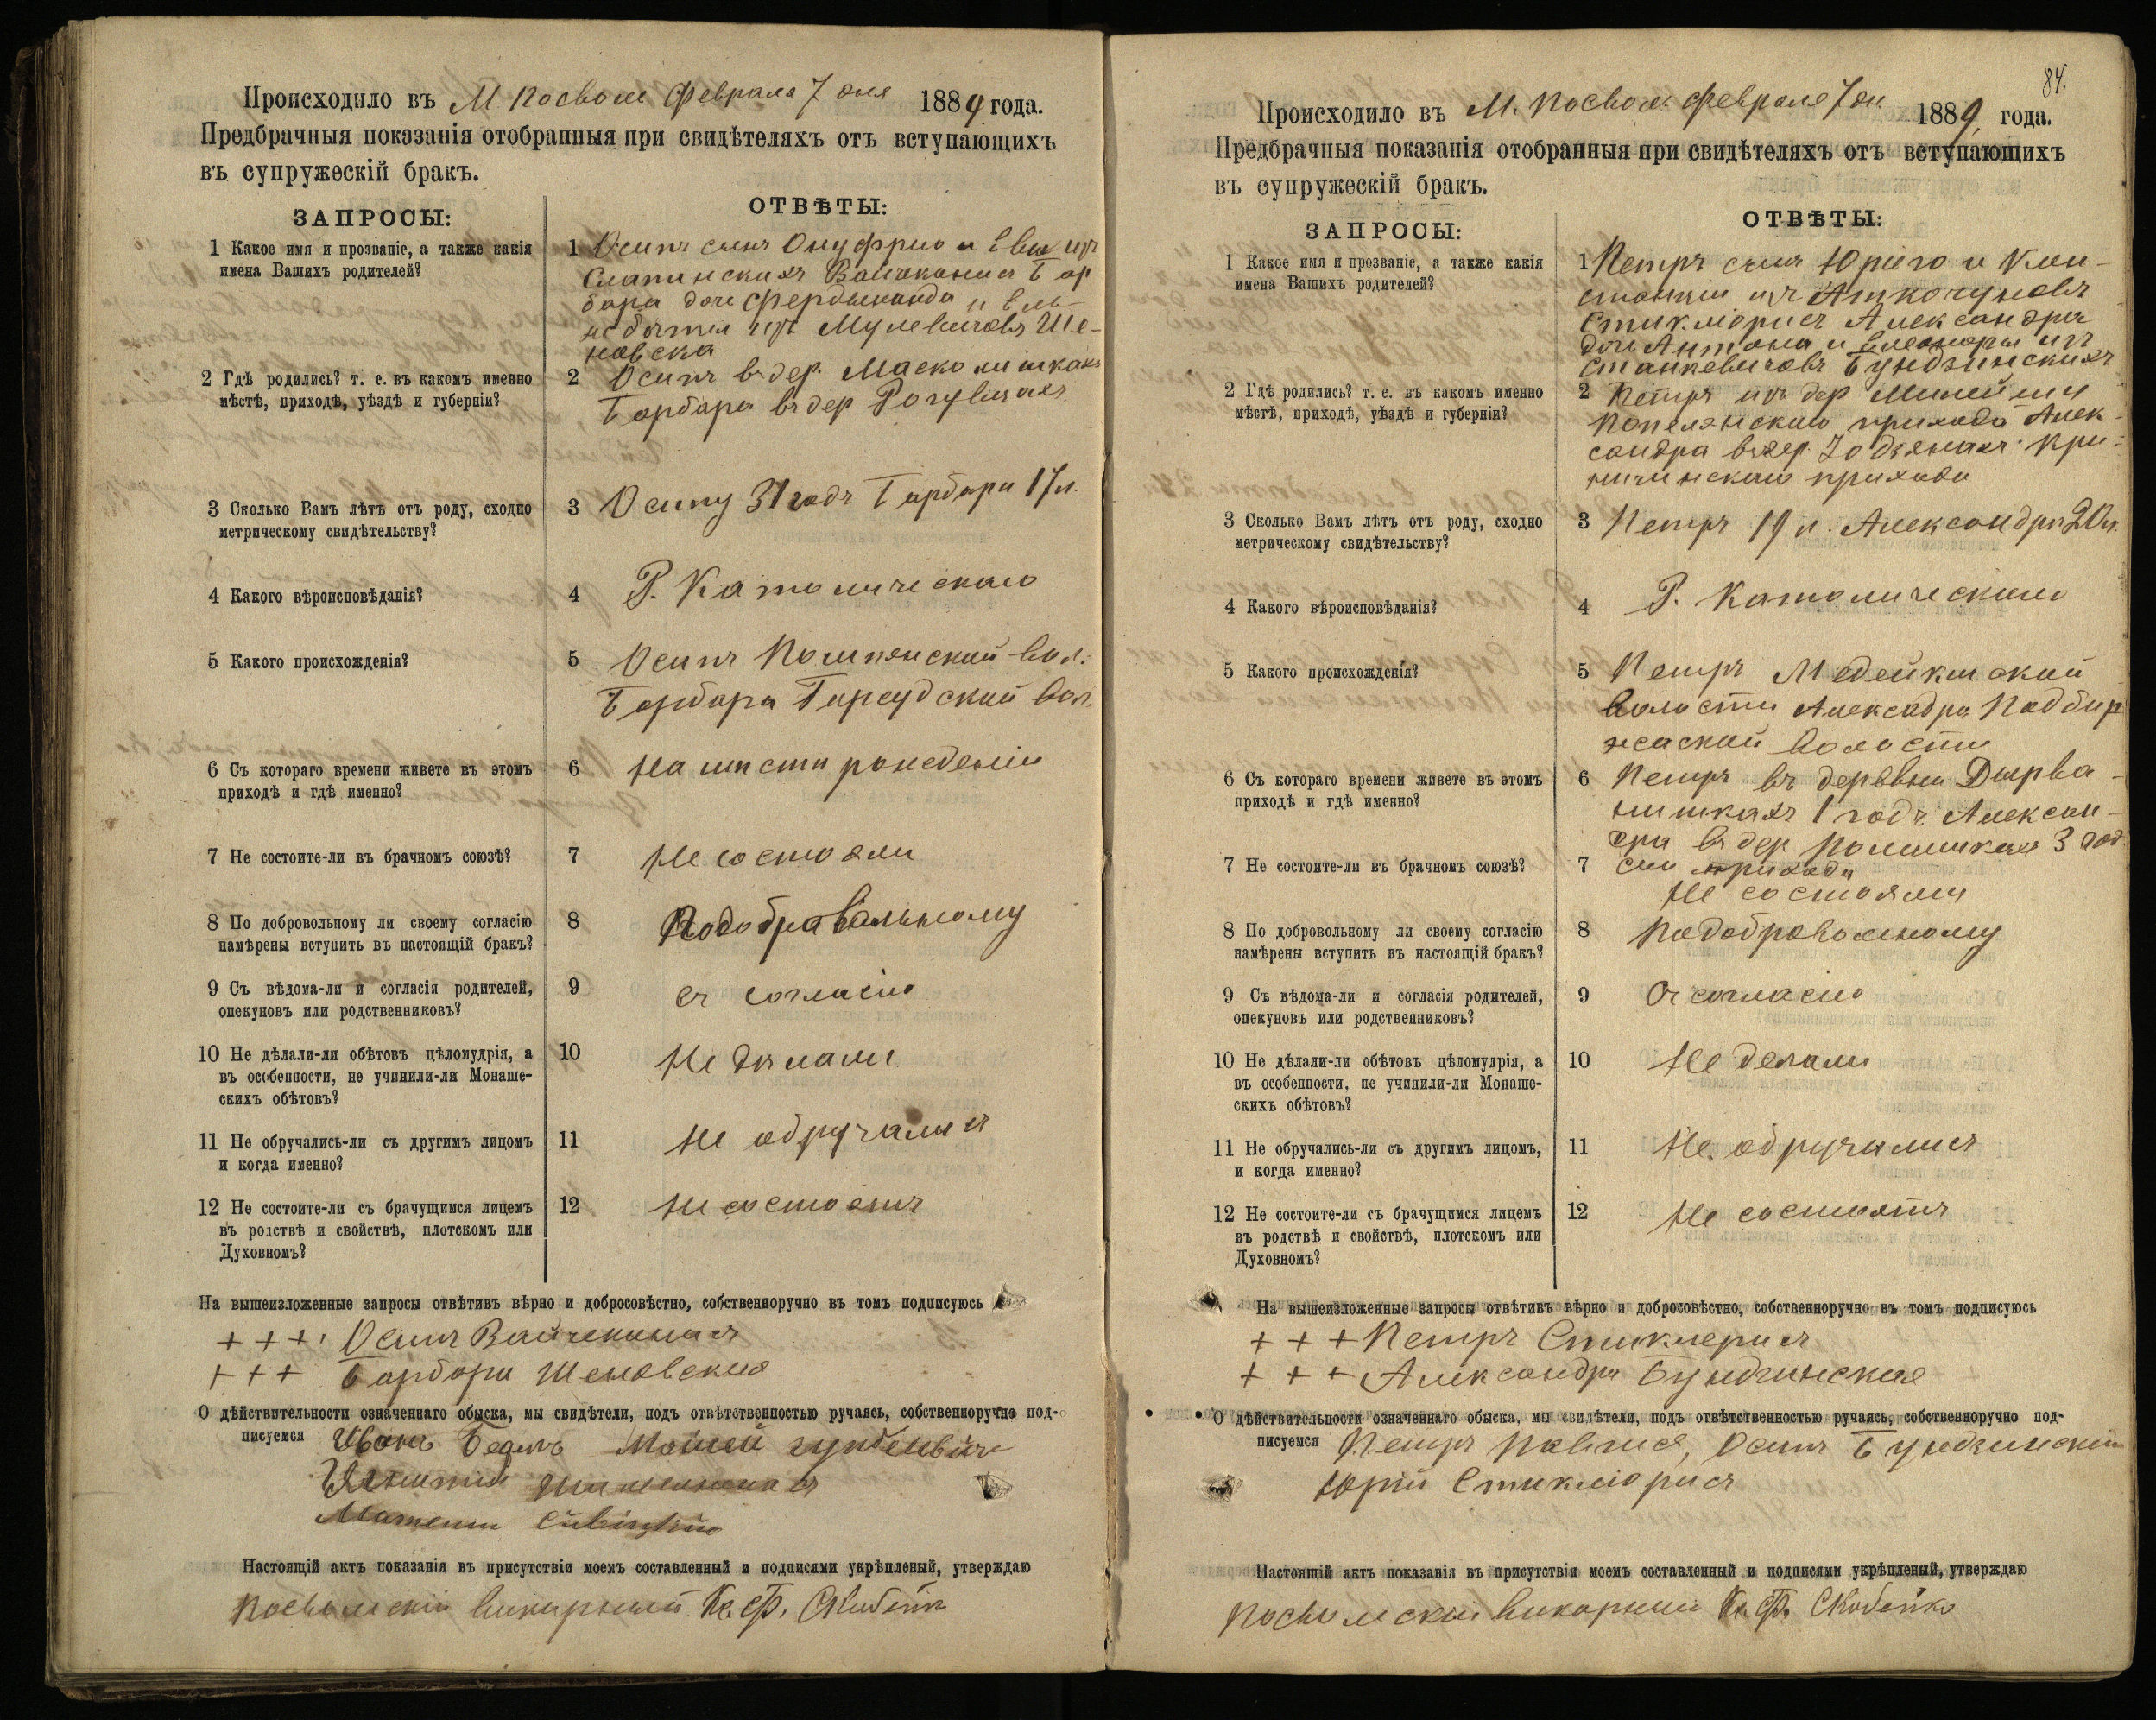 Происходило въ М Посволе Февраля 7 дня 1889 года.
Предбрачныя показанія отобранныя при свидѣтеляхъ отъ вступающихъ
въ супружескій бракъ.
ЗАПРОСЫ:
ОТВѢТЫ:
1 Какое имя и прозваніе, а также какія
имена Вашихъ родителей?
1 Осипъ сынъ Онуфрио и Евы изъ
Слапинскихъ Вайчеконисъ Бар
бара дочь Фердынанда и
изъ Мулевичовъ Ше-
новска
2 Гдѣ родились? т. е. въ какомъ именно
мѣстѣ, приходѣ, уѣздѣ и губерніи?
2 Осипъ в дер. Масколишкахъ
Барбара въ дер
3 Сколько Вамъ лѣтъ отъ роду, сходно
метрическому свидѣтельству?
3 Осипу 31 годъ Барбари 17 л.
4 Какого вѣроисповѣданія?
4 Р. Католическаго
5 Какого происхожденія?
5 Осипъ Помпянский вол.
Барбара вол.
6 Съ котораго времени живете въ этомъ
приходѣ и гдѣ именно?
6 На мисти рождении
7 Не состоите-ли въ брачномъ союзѣ?
7 Не состояли
8 По добровольному ли своему согласію
намѣрены вступить въ настоящій бракъ?
8 Подобравальному
9 Съ вѣдома-ли и согласія родителей,
опекуновъ или родственниковъ?
9 съ согласио
10 Не дѣлали-ли обѣтовъ цѣломудрія, а
въ особенности, не учинили-ли Монаше-
скихъ обѣтовъ?
10 Не дѣлали
11 Не обручались-ли съ другимъ лицомъ
и когда именно?
11 Не обручалися
12 Не состоите-ли съ брачущимся лицемъ
въ родствѣ и свойствѣ, плотскомъ или
Духовномъ?
12 Не состоятъ
На вышеизложенные запросы отвѣтивъ вѣрно и добросовѣстно, собственноручно въ томъ подписуюсь
+ + + Осипъ Вайчеконися
+ + + Барбара Шеновския
О дѣйствительности означеннаго обыска, мы свидѣтели, подъ отвѣтственностью ручаясь, собственноручно под-
писуемся Иванъ
Настоящій актъ показанія въ присутствія моемъ составленный и подписями укрѣпленый, утверждаю
Посвольскій викарный Кс. Ф. Скабейко
84.
Происходило въ М. Посволе Февраля 7 дн 1889 года.
Предбрачныя показанія отобранныя при свидѣтеляхъ отъ вступающихъ
въ супружескій бракъ.
ЗАПРОСЫ:
ОТВѢТЫ:
1 Какое имя и прозваніе, а также какія
имена Вашихъ родителей?
1 Петръ сынъ Юрего и Кон-
станціи изъ Аткочуновъ
Стиклюрисъ Александра
дочь Антона и Елеоноры изъ
Станкевичовъ Бундзинскихъ
2 Гдѣ родились? т. е. въ какомъ именно
мѣстѣ, приходѣ, уѣздѣ и губерніи?
2 Петръ изъ дер
Попелянскаго прихода Алек-
сандра въ дер. Кри-
ничинскаго прихода
3 Сколько Вамъ лѣтъ отъ роду, сходно
метрическому свидѣтельству?
3 Петръ 19 л. Александра 20 л.
4 Какого вѣроисповѣданія?
4 Р. Католическаго
5 Какого происхожденія?
5 Петръ Медейкиский
волости Александра Подбир
жаской волости
6 Съ котораго времени живете въ этомъ
приходѣ и гдѣ именно?
6 Петръ въ деревни Дырва-
нишкахъ 1 годъ Алексан-
дра в дер 3 год.
сии прихода
7 Не состоите-ли въ брачномъ союзѣ?
7 Не состояли
8 По добровольному ли своему согласію
намѣрены вступить въ настоящій бракъ?
8 Подобровольному
9 Съ вѣдома-ли и согласія родителей,
опекуновъ или родственниковъ?
9 Съ согласио
10 Не дѣлали-ли обѣтовъ цѣломудрія, а
въ особенности, не учинили-ли Монаше-
скихъ обѣтовъ?
10 Не делали
11 Не обручались-ли съ другимъ лицомъ,
и когда именно?
11 Не обручалися
12 Не состоите-ли съ брачущимся лицемъ
въ родствѣ и свойствѣ, плотскомъ или
Духовномъ?
12 Не состоятъ
На вышеизложенные запросы отвѣтивъ вѣрно и добросовѣстно, собственноручно въ томъ подписуюсь
+ + + Петръ Стиклерися
+ + + Александра Бундзинская
О дѣйствительности означеннаго обыска, мы свидѣтели, подъ отвѣтственностью ручаясь, собственноручно под-
писуемся Петръ Осипъ Бундзинский
Юрій Стиклюрися
Настоящій актъ показанія въ присутствія моемъ составленный и подписями укрѣпленый, утверждаю
Посвольский викарный Кс. Ф. Скабейко